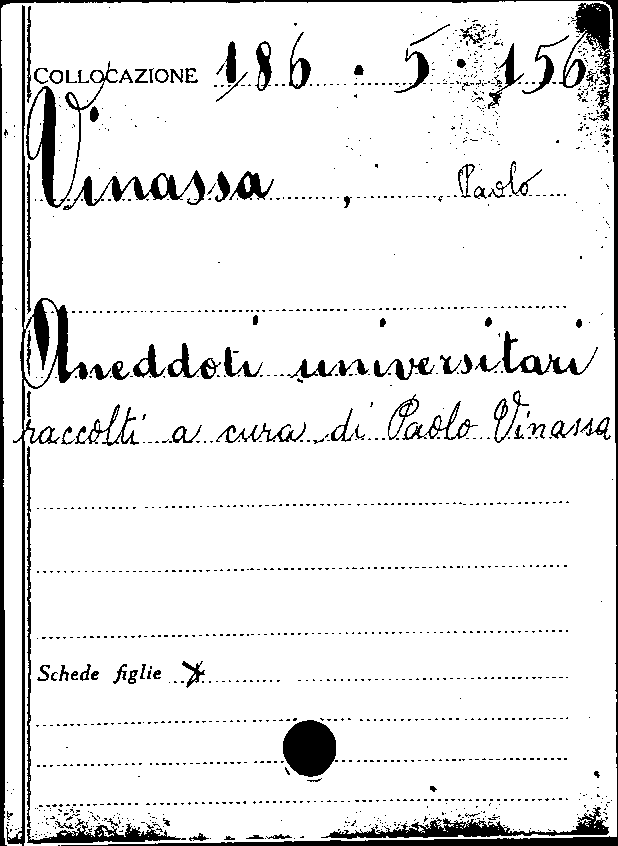 COLLOCAZIONE 186 . 5 . 156
Vinassa, Paolo
Aneddoti universitari
raccolti a cura di Paolo Vinassa
Schede figlie